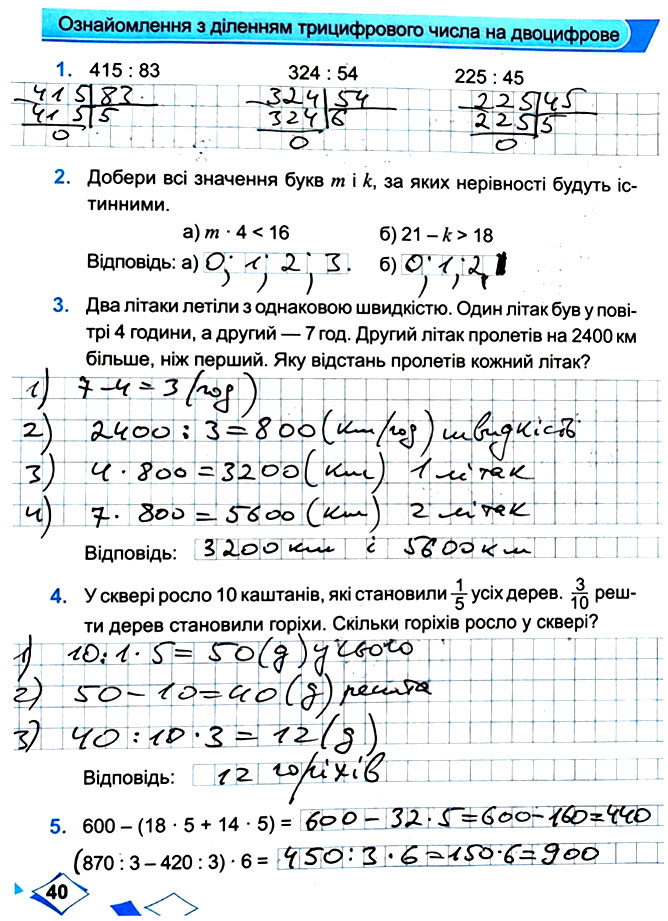 Ознайомлення з діленням трицифрового числа на двоцифрове
1. 415 : 83 324 : 54 225 : 45
415 83 324 54 225 45
415 5 324 6 225 5
0 0 0
2. Добери всі значення букв m і k, за яких нерівності будуть іс-
тинними.
а) m · 4 < 16 б) 21 – k > 18
Відповідь: а) 0; 1; 2; 3. б) 0; 1; 2,
3. Два літаки летіли з однаковою швидкістю. Один літак був у пові-
трі 4 години, а другий — 7 год. Другий літак пролетів на 2400 км
більше, ніж перший. Яку відстань пролетів кожний літак?
1) 7-4=3 (год)
2) 2400 : 3=800 (км/год) швидкість
3) 4 · 800 =3200 (км) 1 літак
4) 7 · 800 = 5600 (км) 2 літак
Відповідь: 3200 км і 5600 км
4. У сквері росло 10 каштанів, які становили 1/5 усіх дерев. 3/10 реш-
ти дерев становили горіхи. Скільки горіхів росло у сквері?
1) 10:1·5= 50 (д) усього
2) 50-10=40 (д) решта
3) 40:10·3=12 (д)
Відповідь: 12 горіхів
5. 600 – (18 · 5 + 14 · 5) = 600 - 32·5=600-160=440
(870 : 3 – 420 : 3) · 6 = 450:3·6=150·6=900
40